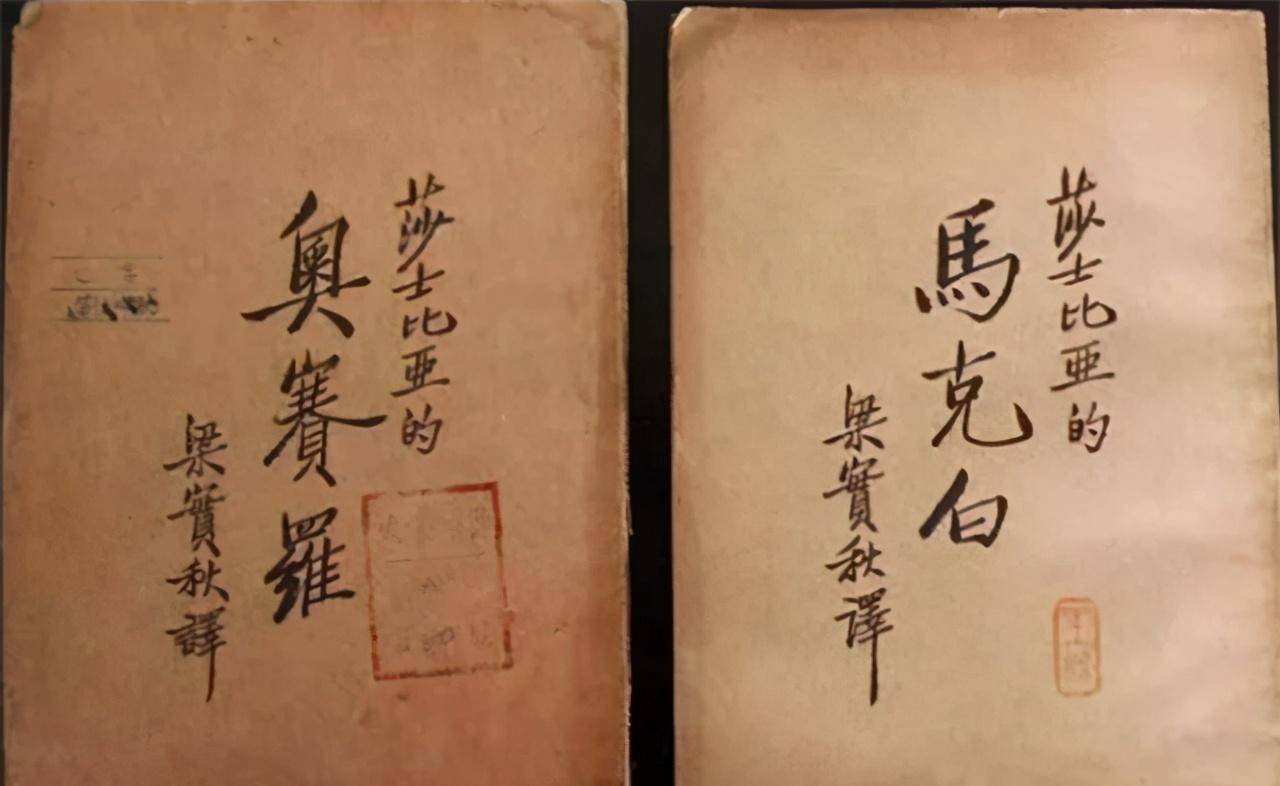 莎士比亚的
奥賽羅
梁實秋譯
莎士比亚的
馬克白
梁實秋譯